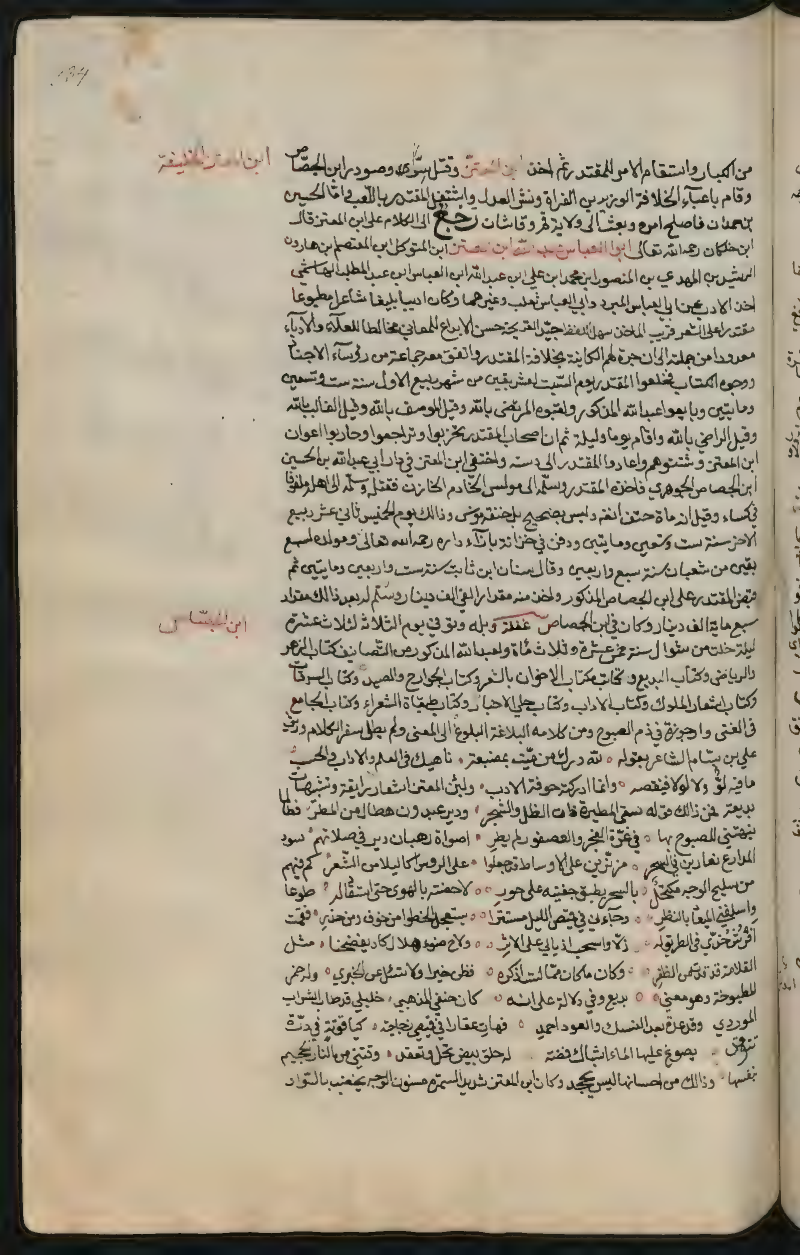 من الكبار واستقام الامر للمقتدر ثم اخذ ابن المعتز وقتل سرا وصودر ابن الجصاص
ابن المعتز الخليفة
وقام باعباء الخلافة الوزير بن الفراة ونشر العدل واشتغل المقتدر باللعب واما الحسين
بن حمدان فاصلح امره وبعث الى ولاية قم وقاشان رجع الى الكلام على ابن المعتز قال
ابن خلكان رحمه الله تعالى ابى العباس عبد الله ابن المعتز ابن المتوكل ابن المعتصم بن هارون
الرشيد بن المهدي بن المنصور ابن محمد ابن علي ابن عبد الله ابن العباس ابن عبد المطلب الهاشمي
اخذ الادب عن ابي العباس المبرد وابي العباس ثعلب وغيرهما وكان اديبا بليغا شاعرا مطبوعا
مقتدرا على الشعر قريب الماخذ سهل اللفظ جيد القريحة حسن الابداع للمعاني مخالطا للعلماء والادباء
معدودا من جملتهم الى ان جرة لهم الكاينة بخلافة المقتدر واتفق معه جماعة من رؤساء الاجناد
ووجوه الكتاب فخلعوا المقتدر يوم السبت لعشر بقين من شهر ربيع الاول سنة ست وتسعين
ومايتين وبايعوا عبد الله المذكور ولقبوه المرتضى بالله وقيل المنصف بالله وقيل الغالب بالله
وقيل الراضي بالله واقام يوما وليلة ثم ان اصحاب المقتدر تحزبوا وتراجعوا وحاربوا اعوان
ابن المعتز وشتتوهم واعادوا المقتدر الى دسته واختفى ابن المعتز في دار ابي عبد الله بن الحسين
ابن الجصاص الجوهري فاخذه المقتدر وسلمه الى مونس الخادم الخازن فقتله وسلمه الى اهله ملفوفا
في كساء وقيل انه مات حتف انفه وليس بصحيح بل خنقه مونس وذالك يوم الخميس ثاني عشر ربيع
الاخر سنة ست وتسعين ومايتين ودفن في خرابة بازاء داره رحمه الله تعالى ومولده لسبع
بقين من شعبان سنة سبع واربعين وقال سنان ابن ثابت سنة ست واربعين ومايتين ثم
قبض المقتدر على ابن الجصاص المذكور واخذ منه مقدار الفي الف دينار وسلم له بعد ذالك مقدار
سبع ماية الف دينار وكان في ابن الجصاص غفلة وبله وتوفي يوم الثلاثا لثلاث عشرة
ابن الجصاص
ليلة خلت من شوال سنة خمس عشرة وثلاث مئة ولعبد الله المذكور من التصانيف كتاب الزهر
والرياض وكتاب البديع وكتاب مكاتبات الاخوان بالشعر وكتاب الجوارح والصيد وكتاب السرقات
وكتاب اشعار الملوك وكتاب الاداب وكتاب حلي الاخبار وكتاب طبقات الشعراء وكتاب الجامع
في الغنى وارجوزة في ذم الصبوح ومن كلامه البلاغة البلوغ الى المعنى ولم يطل سفر الكلام ورثاه
علي بن بسام الشاعر بقوله لله درك من ميت بمضيعة ناهيك في العلم والاداب والحسب
ما فيه لو ولا لولا فينقصه وانما ادركته حرفة الادب ولابن المعتز اشعار رايقة وتشبيهات
بديعة فمن ذالك قوله سقى المطيرة ذات الظل والشجر ودير عبدون هطال من المطر فطالما
نبهتني للصبوح بها في غرة الفجر والعصفور لم يطر اصوات رهبان دير في صلاتهم سود
المدارع نعارين في السحر مزنرين على الاوساط قد جعلوا على الرؤس اكاليلا من الشعر كم فيهم
من مليح الوجه مكتحل بالسحر يطبق جفنيه على حور لاحظته بالهوى حتى استقاد له طوعا
واسلفني الميعاد بالنظر وجاءني في قميص الليل مستترا يستعجل الخطو من خوف ومن حذر فقمت
افرش خدي في الطريق له ذلا واسحب اذيالي على الاثر ولاح ضوء هلال كاد يفضحنا مثل
القلامة قد قدت من الظفر وكان ما كان مما لست اذكره فظن خيرا ولا تسئل عن الخبر وله في خمر
المطبوخة وهو معنى بديع وفيه دلالة على انه كان حنفي المذهب خليلي قد طاب الشراب
الموردي وقد عدة بعد النسك والعود احمد فهات عقارا في قميص زجاجة كياقوتة في درة
تتوقد يصوغ عليها الماء اشباك فضة له حلق بيض تحل وتعقد وقتني من النار الجحيم
بنفسها وذالك من احسانها ليس يجحد وكان ابن المعتز شديد السمرة مسنون الوجه يخضب بالسواد